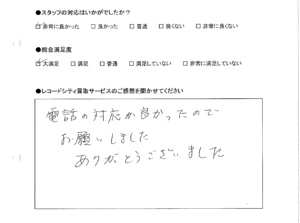 ●スタッフの対応はいかがでしたか？
☑非常に良かった □良かった □普通 □良くない □非常に良くない
●総合満足度
☑大満足 □満足 □普通 □満足していない □非常に満足していない
●レコードシティ買取サービスのご感想を聞かせてください
電話の対応が良かったので
お願いしました
ありがとうございました